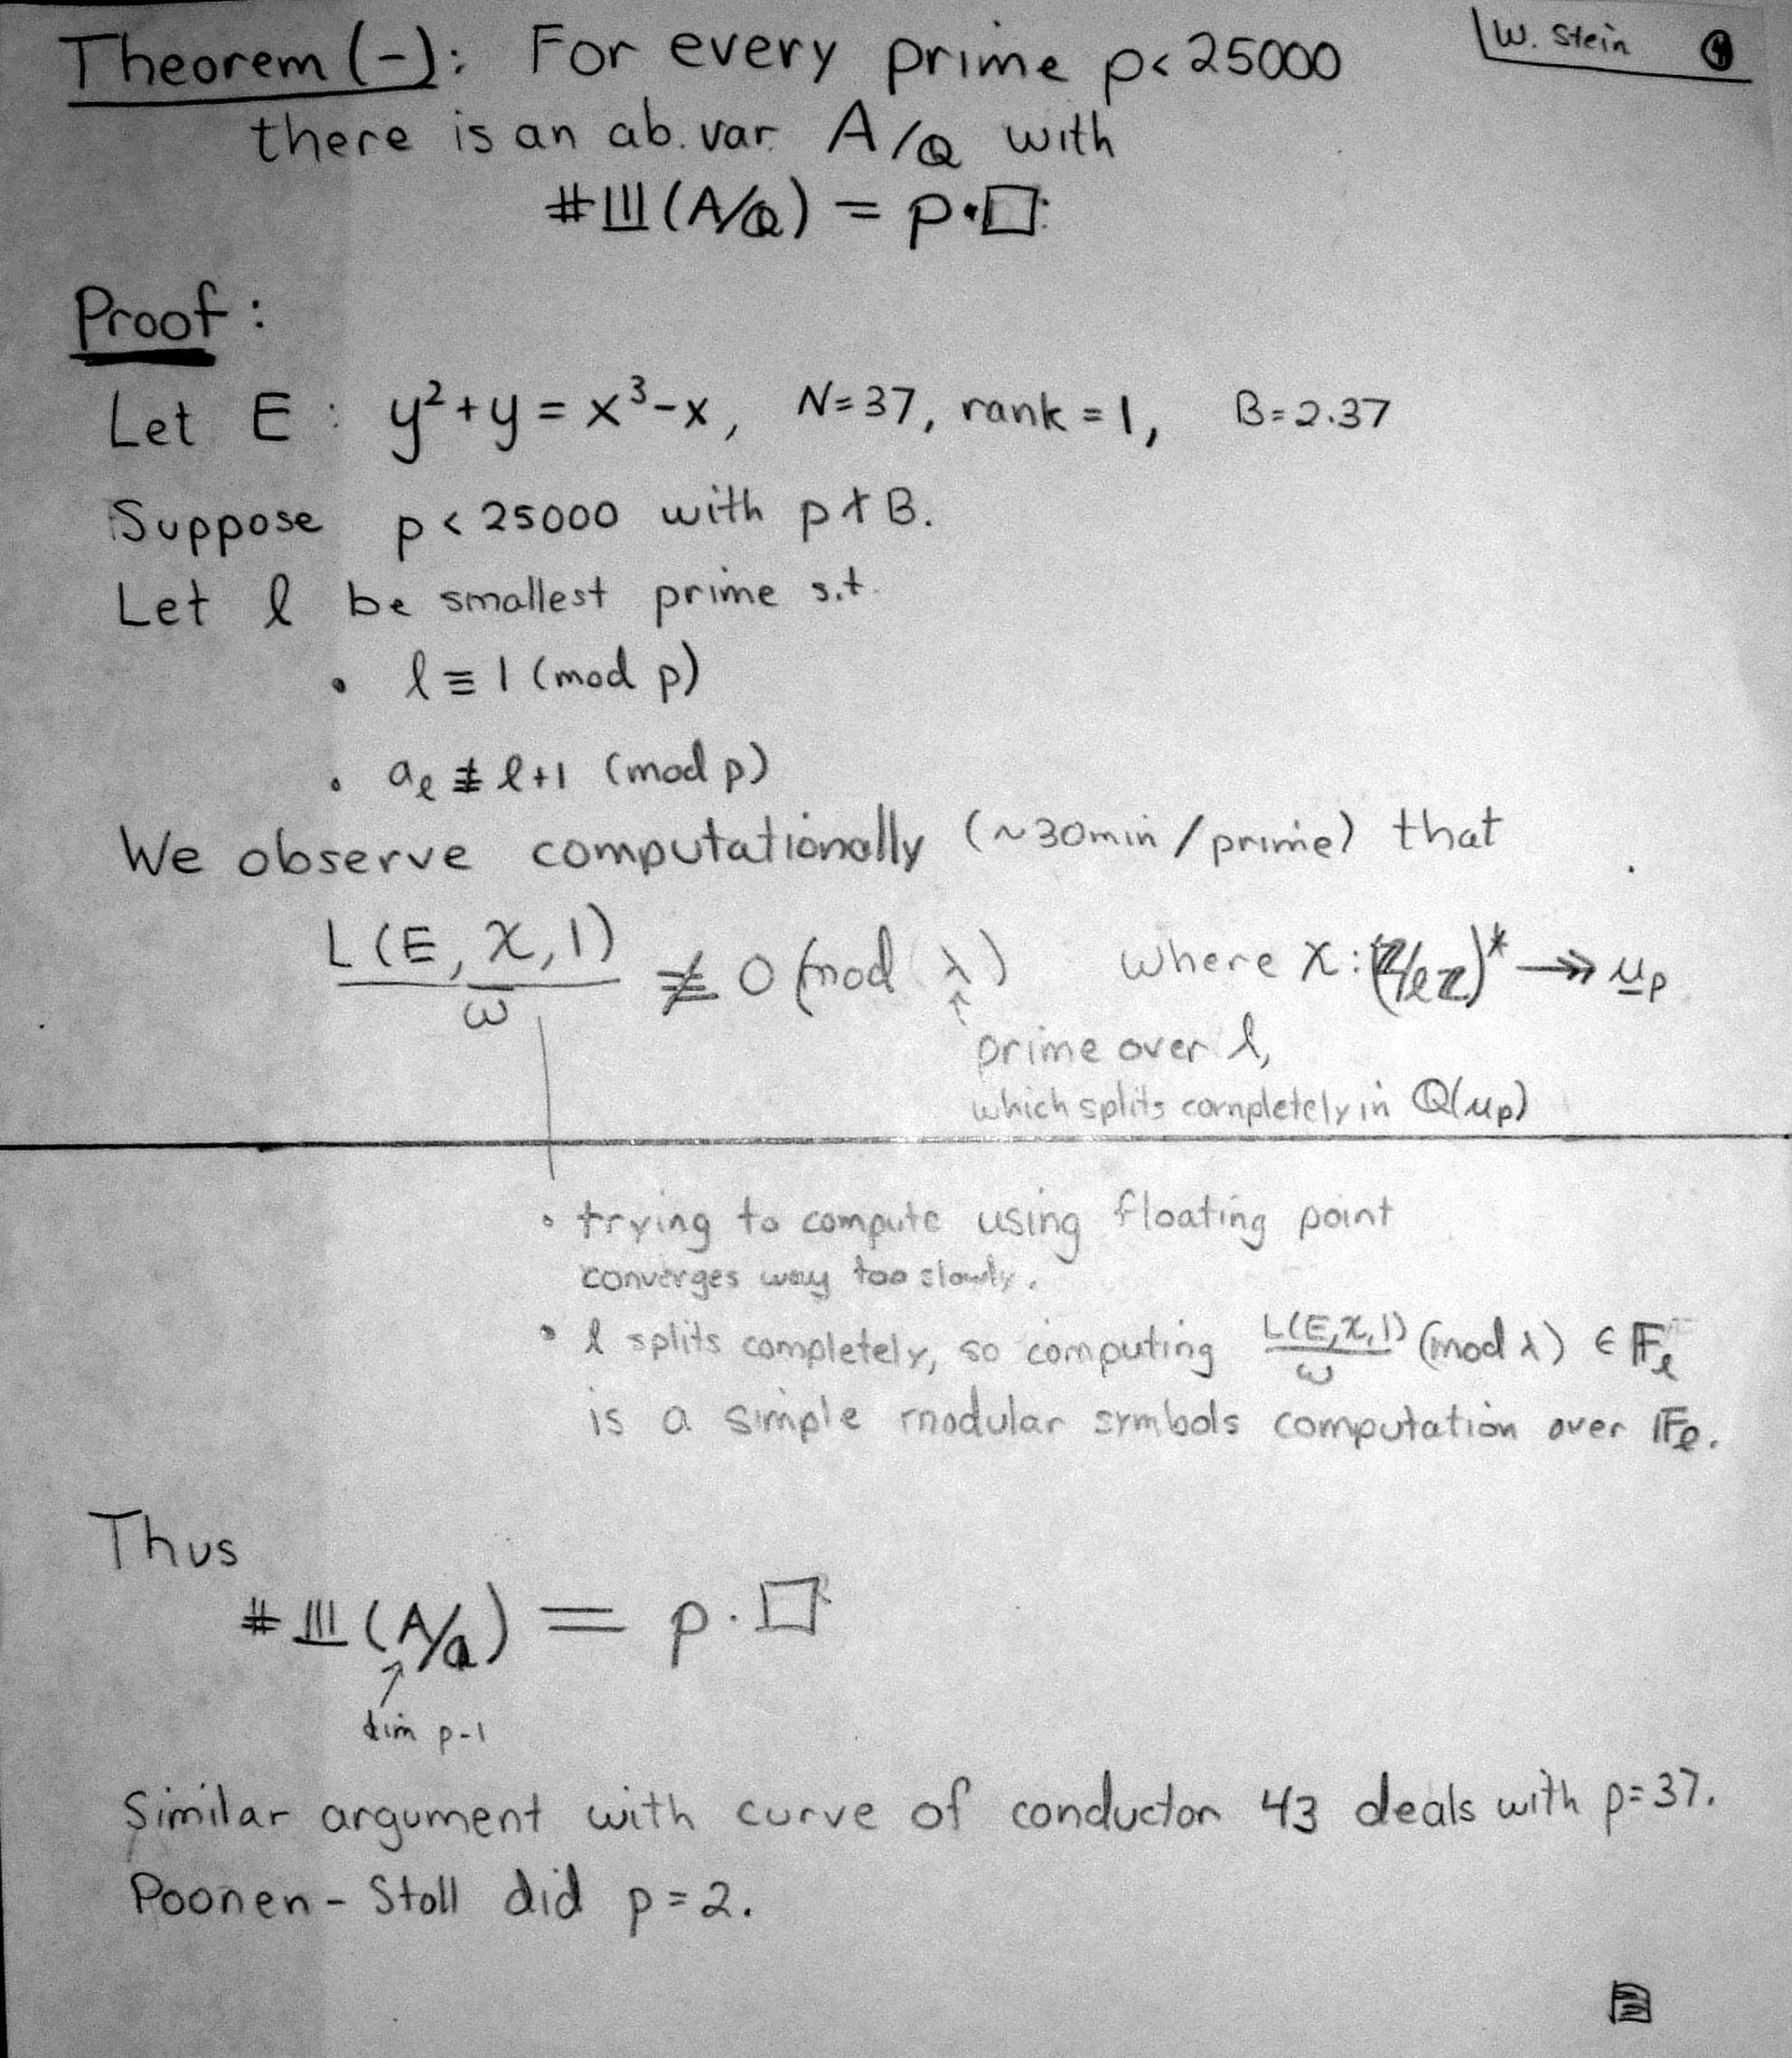 Theorem (-): For every prime p<25000
W. Stein 4
there is an ab. var. A/Q with
#Ш(A/Q) = p·□.
Proof:
Let E: y²+y = x³-x, N=37, rank=1, B=2·37
Suppose p<25000 with p∤B.
Let ℓ be smallest prime s.t.
• ℓ ≡ 1 (mod p)
• a_ℓ ≢ ℓ+1 (mod p)
We observe computationally (~30min/prime) that
L(E,χ,1)/ω ≢ 0 (mod λ) where χ: (Z/ℓZ)* ↠ μ_p
prime over ℓ,
which splits completely in Q(μ_p)
• trying to compute using floating point
converges way too slowly.
• ℓ splits completely, so computing L(E,χ,1)/ω (mod λ) ∈ F_ℓ
is a simple modular symbols computation over F_ℓ.
Thus
#Ш(A/Q) = p·□
↑
dim p-1
Similar argument with curve of conductor 43 deals with p=37.
Poonen-Stoll did p=2.